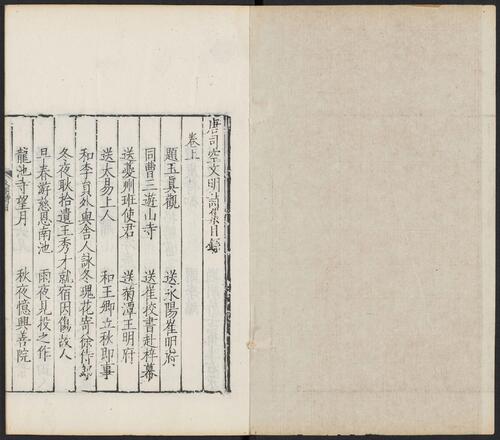 唐司空文明詩集目錄
卷上
題玉真觀 送永陽崔明府
同曹三遊山寺 送崔校書赴梓幕
送夔州班使君 送菊潭王明府
送太易上人 和王卿立秋即事
和李員外與舍人詠冬瑰花寄徐侍郎
冬夜耿拾遺王秀才就宿因傷故人
早春游慈恩南池 雨夜見投之作
龍池寺望月 秋夜憶興善院